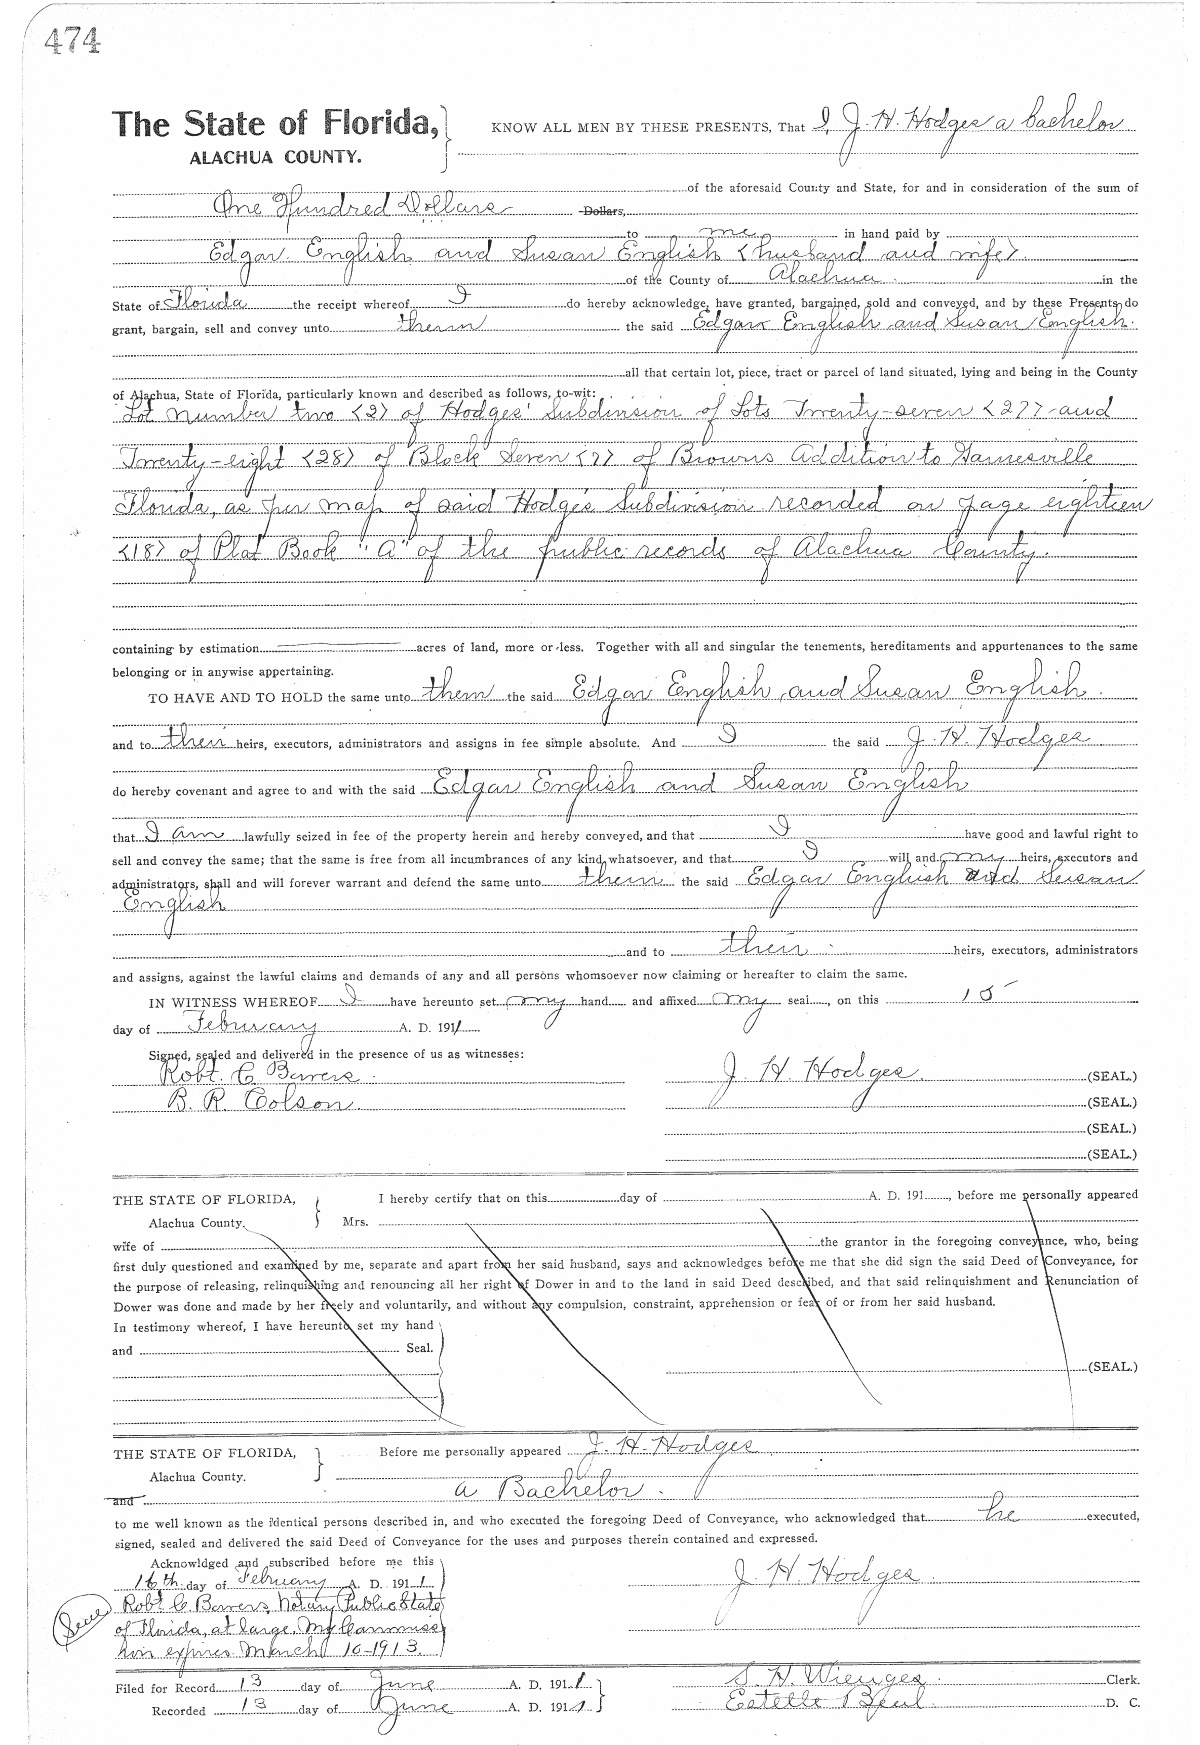 474
The State of Florida, KNOW ALL MEN BY THESE PRESENTS, That I, J. H. Hodges a bachelor
ALACHUA COUNTY.
of the aforesaid County and State, for and in consideration of the sum of
One Hundred Dollars Dollars,
to me in hand paid by
Edgar English and Susan English <husband and wife>
of the County of Alachua in the
State of Florida the receipt whereof I do hereby acknowledge, have granted, bargained, sold and conveyed, and by these Presents do
grant, bargain, sell and convey unto them the said Edgar English and Susan English
all that certain lot, piece, tract or parcel of land situated, lying and being in the County
of Alachua, State of Florida, particularly known and described as follows, to-wit:
Lot number two <2> of Hodges' Subdivision of Lots Twenty-seven <27> and
Twenty-eight <28> of Block Seven <7> of Browns Addition to Gainesville
Florida, as per map of said Hodges Subdivision recorded on page eighteen
<18> of Plat Book "A" of the public records of Alachua County.
containing by estimation acres of land, more or less. Together with all and singular the tenements, hereditaments and appurtenances to the same
belonging or in anywise appertaining.
TO HAVE AND TO HOLD the same unto them the said Edgar English and Susan English.
and to their heirs, executors, administrators and assigns in fee simple absolute. And I the said J. H. Hodges
do hereby covenant and agree to and with the said Edgar English and Susan English
that I am lawfully seized in fee of the property herein and hereby conveyed, and that I have good and lawful right to
sell and convey the same; that the same is free from all incumbrances of any kind whatsoever, and that I will and my heirs, executors and
administrators, shall and will forever warrant and defend the same unto them the said Edgar English and Susan
English
and to their heirs, executors, administrators
and assigns, against the lawful claims and demands of any and all persons whomsoever now claiming or hereafter to claim the same.
IN WITNESS WHEREOF I have hereunto set my hand and affixed my seal, on this 15
day of February A. D. 1911
Signed, sealed and delivered in the presence of us as witnesses:
Robt. C. Bowers J. H. Hodges. (SEAL.)
B. R. Colson. (SEAL.)
(SEAL.)
(SEAL.)
THE STATE OF FLORIDA, I hereby certify that on this day of A. D. 191 , before me personally appeared
Alachua County. Mrs.
wife of the grantor in the foregoing conveyance, who, being
first duly questioned and examined by me, separate and apart from her said husband, says and acknowledges before me that she did sign the said Deed of Conveyance, for
the purpose of releasing, relinquishing and renouncing all her right of Dower in and to the land in said Deed described, and that said relinquishment and Renunciation of
Dower was done and made by her freely and voluntarily, and without any compulsion, constraint, apprehension or fear of or from her said husband.
In testimony whereof, I have hereunto set my hand
and Seal.
(SEAL.)
THE STATE OF FLORIDA, Before me personally appeared J. H. Hodges
Alachua County.
and a Bachelor.
to me well known as the identical persons described in, and who executed the foregoing Deed of Conveyance, who acknowledged that he executed,
signed, sealed and delivered the said Deed of Conveyance for the uses and purposes therein contained and expressed.
Acknowldged and subscribed before me this
16th day of February A. D. 1911 J. H. Hodges.
Robt. C. Bowers, Notary Public State
of Florida, at large. My Commiss
ion expires March 10-1913.
Filed for Record 13 day of June A. D. 1911 S. H. Wienges Clerk.
Recorded 13 day of June A. D. 1911 Estelle D. C.